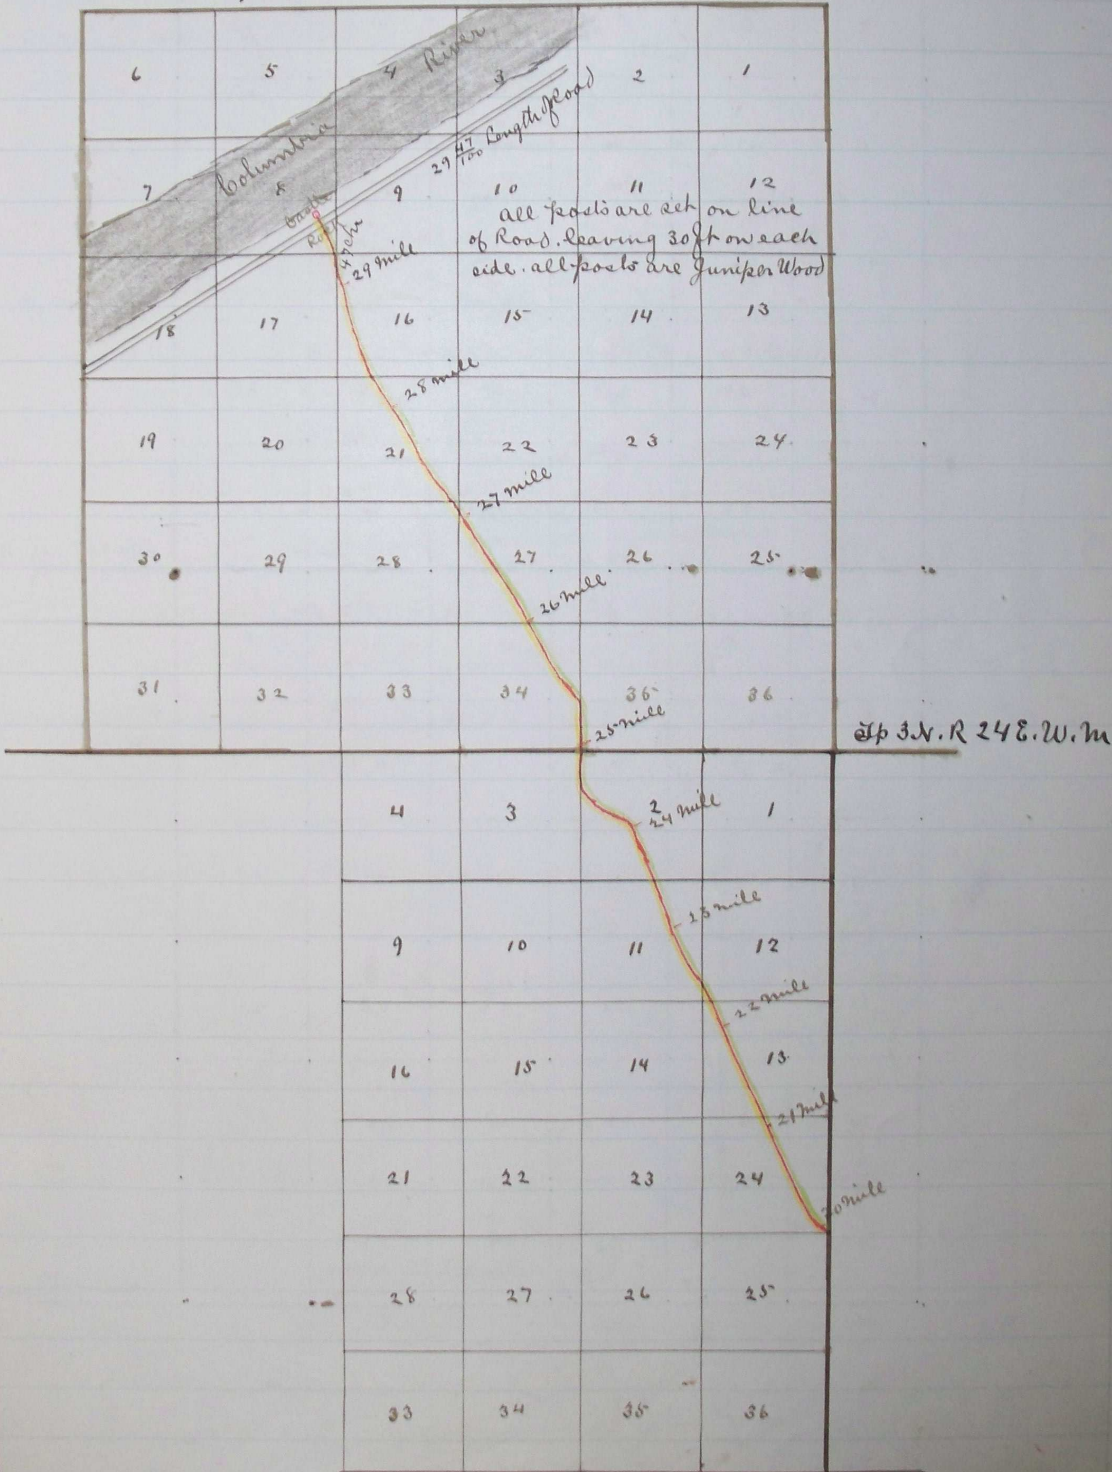 6 5 4 3 2 1
Columbia River
29 47/100 Length of Road
7 8 9 10 11 12
Castle
Rock
47 chs
all posts are set on line
of Road. leaving 30 ft on each
side. all posts are Juniper Wood
29 mile
18 17 16 15 14 13
28 mile
19 20 21 22 23 24
27 mile
30 29 28 27 26 25
26 mile
31 32 33 34 35 36
25 mile
Tp 3 N. R 24 E. W. M
4 3 2 1
24 mile
23 mile
9 10 11 12
22 mile
16 15 14 13
21 mile
21 22 23 24
20 mile
28 27 26 25
33 34 35 36